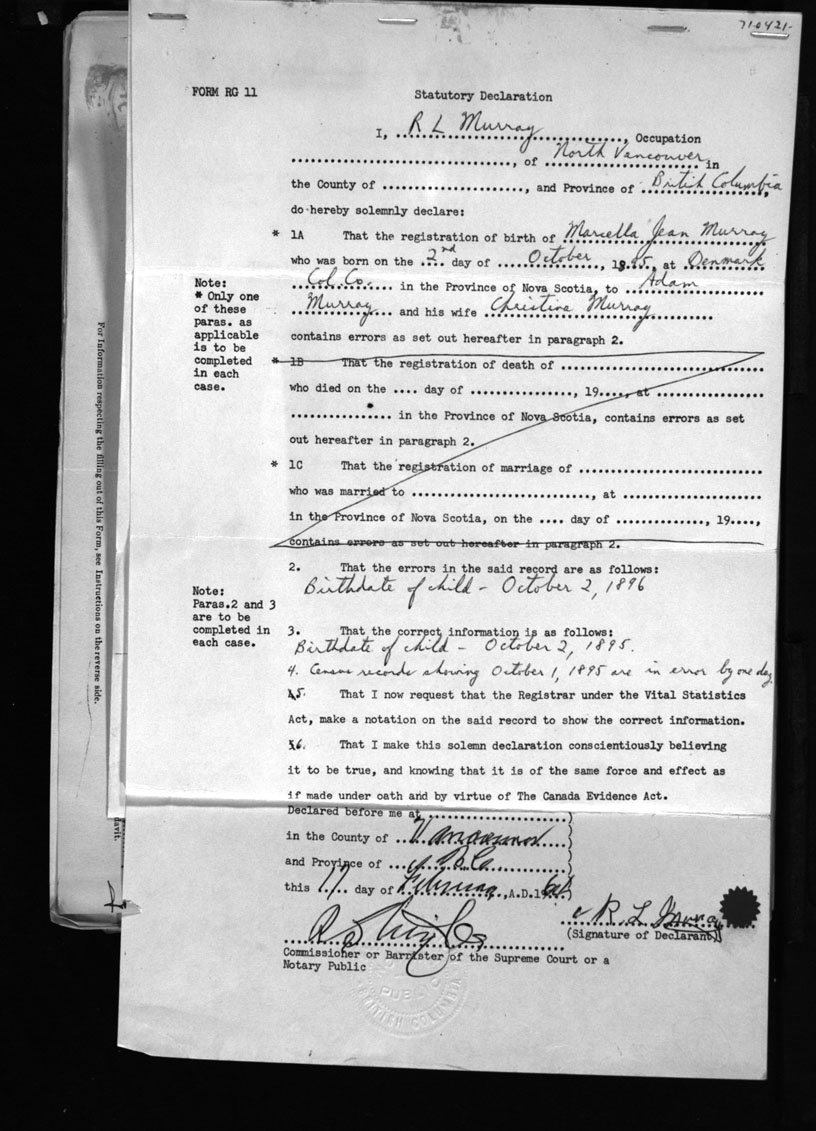 710421-
FORM RG 11
Statutory Declaration
I, R L Murray, Occupation
, of North Vancouver in
the County of ......, and Province of British Columbia,
do hereby solemnly declare:
* 1A That the registration of birth of Marcella Jean Murray
who was born on the 2nd day of October, 1895, at Denmark
Col. Co. in the Province of Nova Scotia, to Adam
Murray and his wife Christina Murray
contains errors as set out hereafter in paragraph 2.
Note:
* Only one
of these
paras. as
applicable
is to be
completed
in each
case.
* 1B That the registration of death of ......
who died on the .... day of ......, 19...., at ......
...... in the Province of Nova Scotia, contains errors as set
out hereafter in paragraph 2.
* 1C That the registration of marriage of ......
who was married to ......, at ......
in the Province of Nova Scotia, on the .... day of ......, 19....,
contains errors as set out hereafter in paragraph 2.
2. That the errors in the said record are as follows:
Birthdate of child - October 2, 1896
Note:
Paras.2 and 3
are to be
completed in
each case.
3. That the correct information is as follows:
Birthdate of child - October 2, 1895.
4. Census records showing October 1, 1895 are in error by one day.
5. That I now request that the Registrar under the Vital Statistics
Act, make a notation on the said record to show the correct information.
6. That I make this solemn declaration conscientiously believing
it to be true, and knowing that it is of the same force and effect as
if made under oath and by virtue of The Canada Evidence Act.
Declared before me at ......
in the County of Vancouver
and Province of B.C.
this 17 day of February, A.D. 19
R L Murray
(Signature of Declarant)
Commissioner or Barrister of the Supreme Court or a
Notary Public
PUBLIC
BRITISH COLUMBIA
For Information respecting the filling out of this Form, see Instructions on the reverse side.
davit.